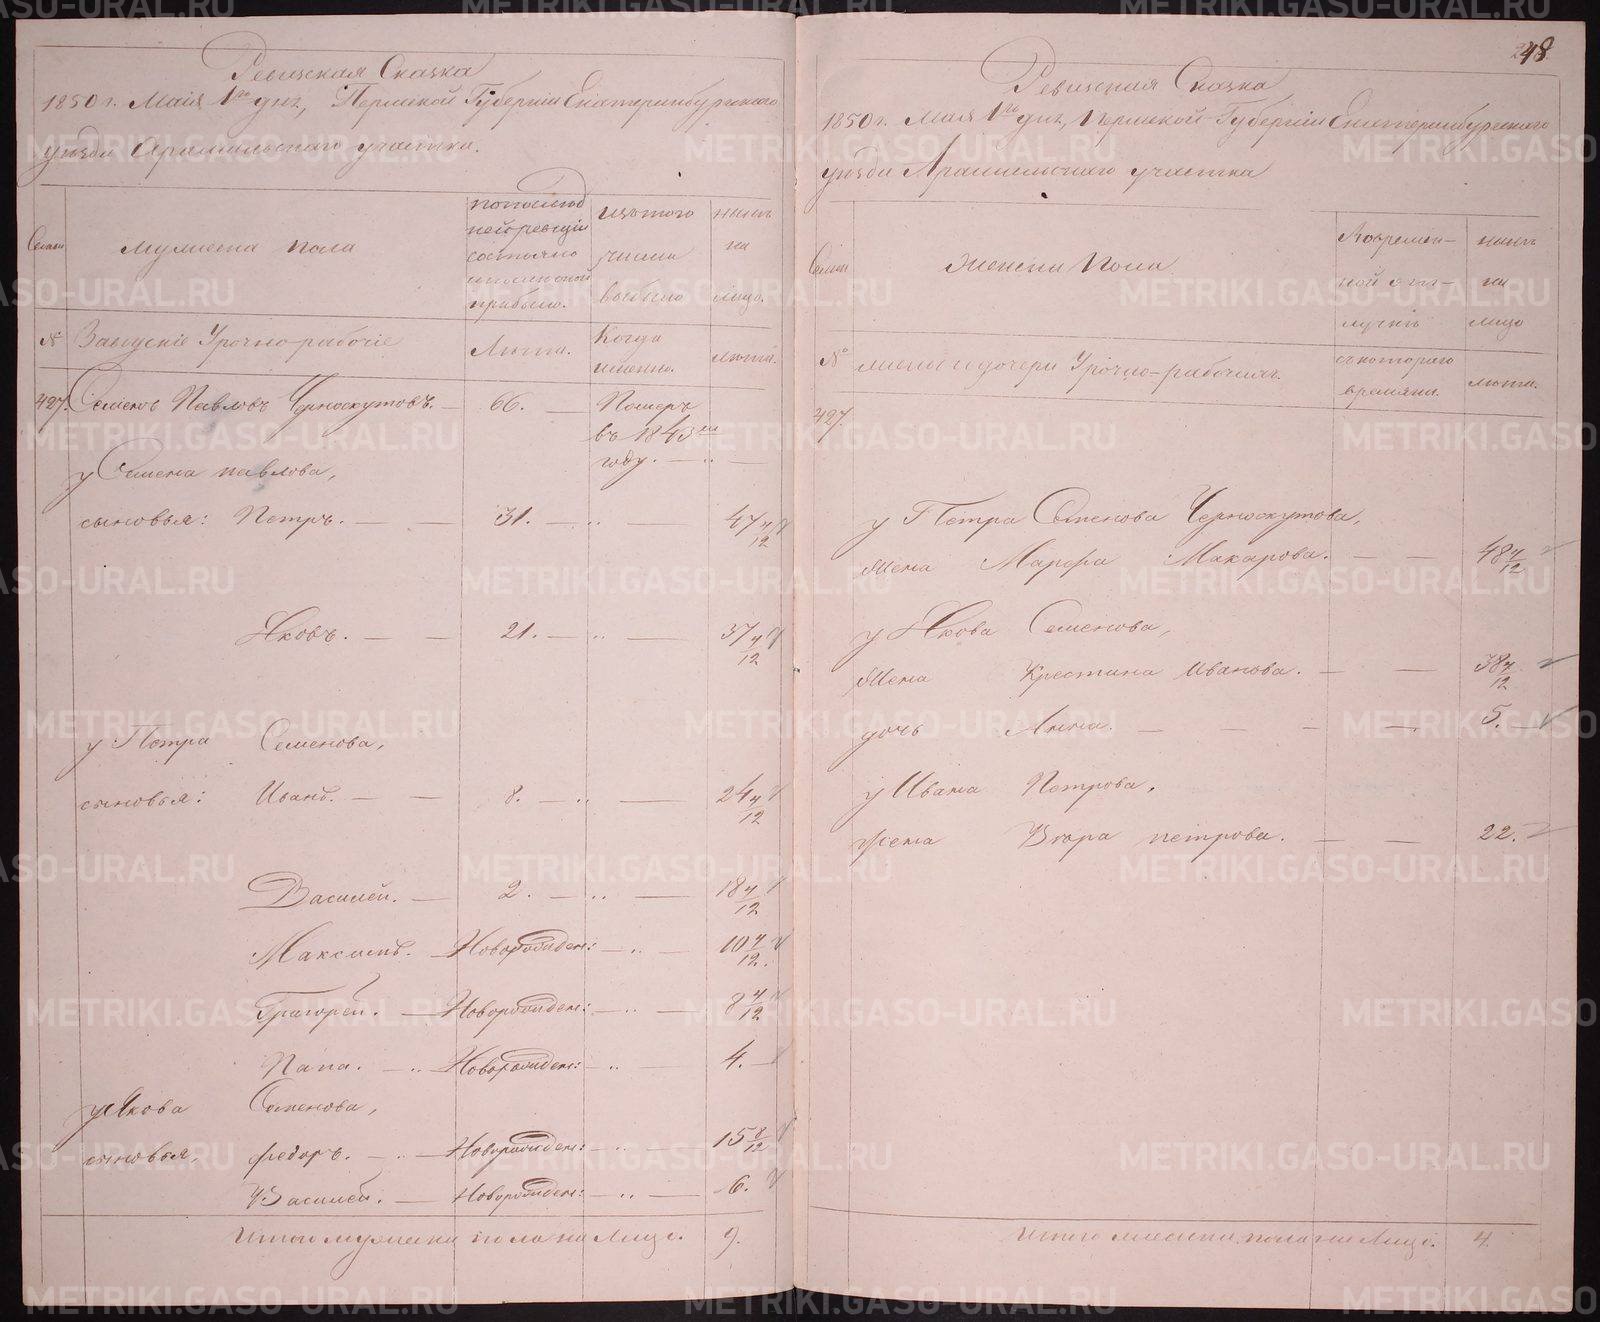 Ревизская Сказка
1850 г. Мая 1го дня, Пермской Губернии Екатеринбургского
уезда Арамильского участка.
Семьи
мужеска пола
по последней ревизии состояло и после оной прибыло.
из того числа выбыло
ныне на лицо.
№
Заводские Урочно-рабочие
Лета.
Когда именно.
лета.
427. Семенъ Павловъ Черноскутовъ. — 66. — Померъ въ 1843м году. —
у Семена павлова,
сыновья: Петръ. — 31. — 47 7/12
Яковъ. — — 21. — 37 7/12
у Петра Семенова,
сыновья: Иванъ. — — 8. — 24 7/12
Василей. — 2. — 18 7/12
Максимъ. — Новорожден: — 10 7/12.
Григорей. — Новорожден: — 8 7/12
Папа. — Новорожден: — 4. —
у Якова Семенова,
сыновья, федоръ. — Новорожден: — 15 8/12
Василей. — Новорожден: — 6.
Итого мужеска пола на Лицо. 9.
48
Ревизская Сказка
1850 г. Мая 1го дня, Пермской Губернии Екатеринбургского
уезда Арамильского участка
Семьи
Женска Пола
Во временной отлучке
ныне на лицо
№
жены и дочери Урочно-рабочихъ.
съ которого времяни.
лета.
427.
у Петра Семенова Черноскутова,
Жена Марфа Макарова. — — 48 7/12
у Якова Семенова,
Жена Крестина Иванова. — — 38 7/12
дочь Анна. — — — — 5. —
у Ивана Петрова,
Жена Вера петрова. — — 22.
Итого женска пола на Лицо. 4.
METRIKI.GASO-URAL.RU